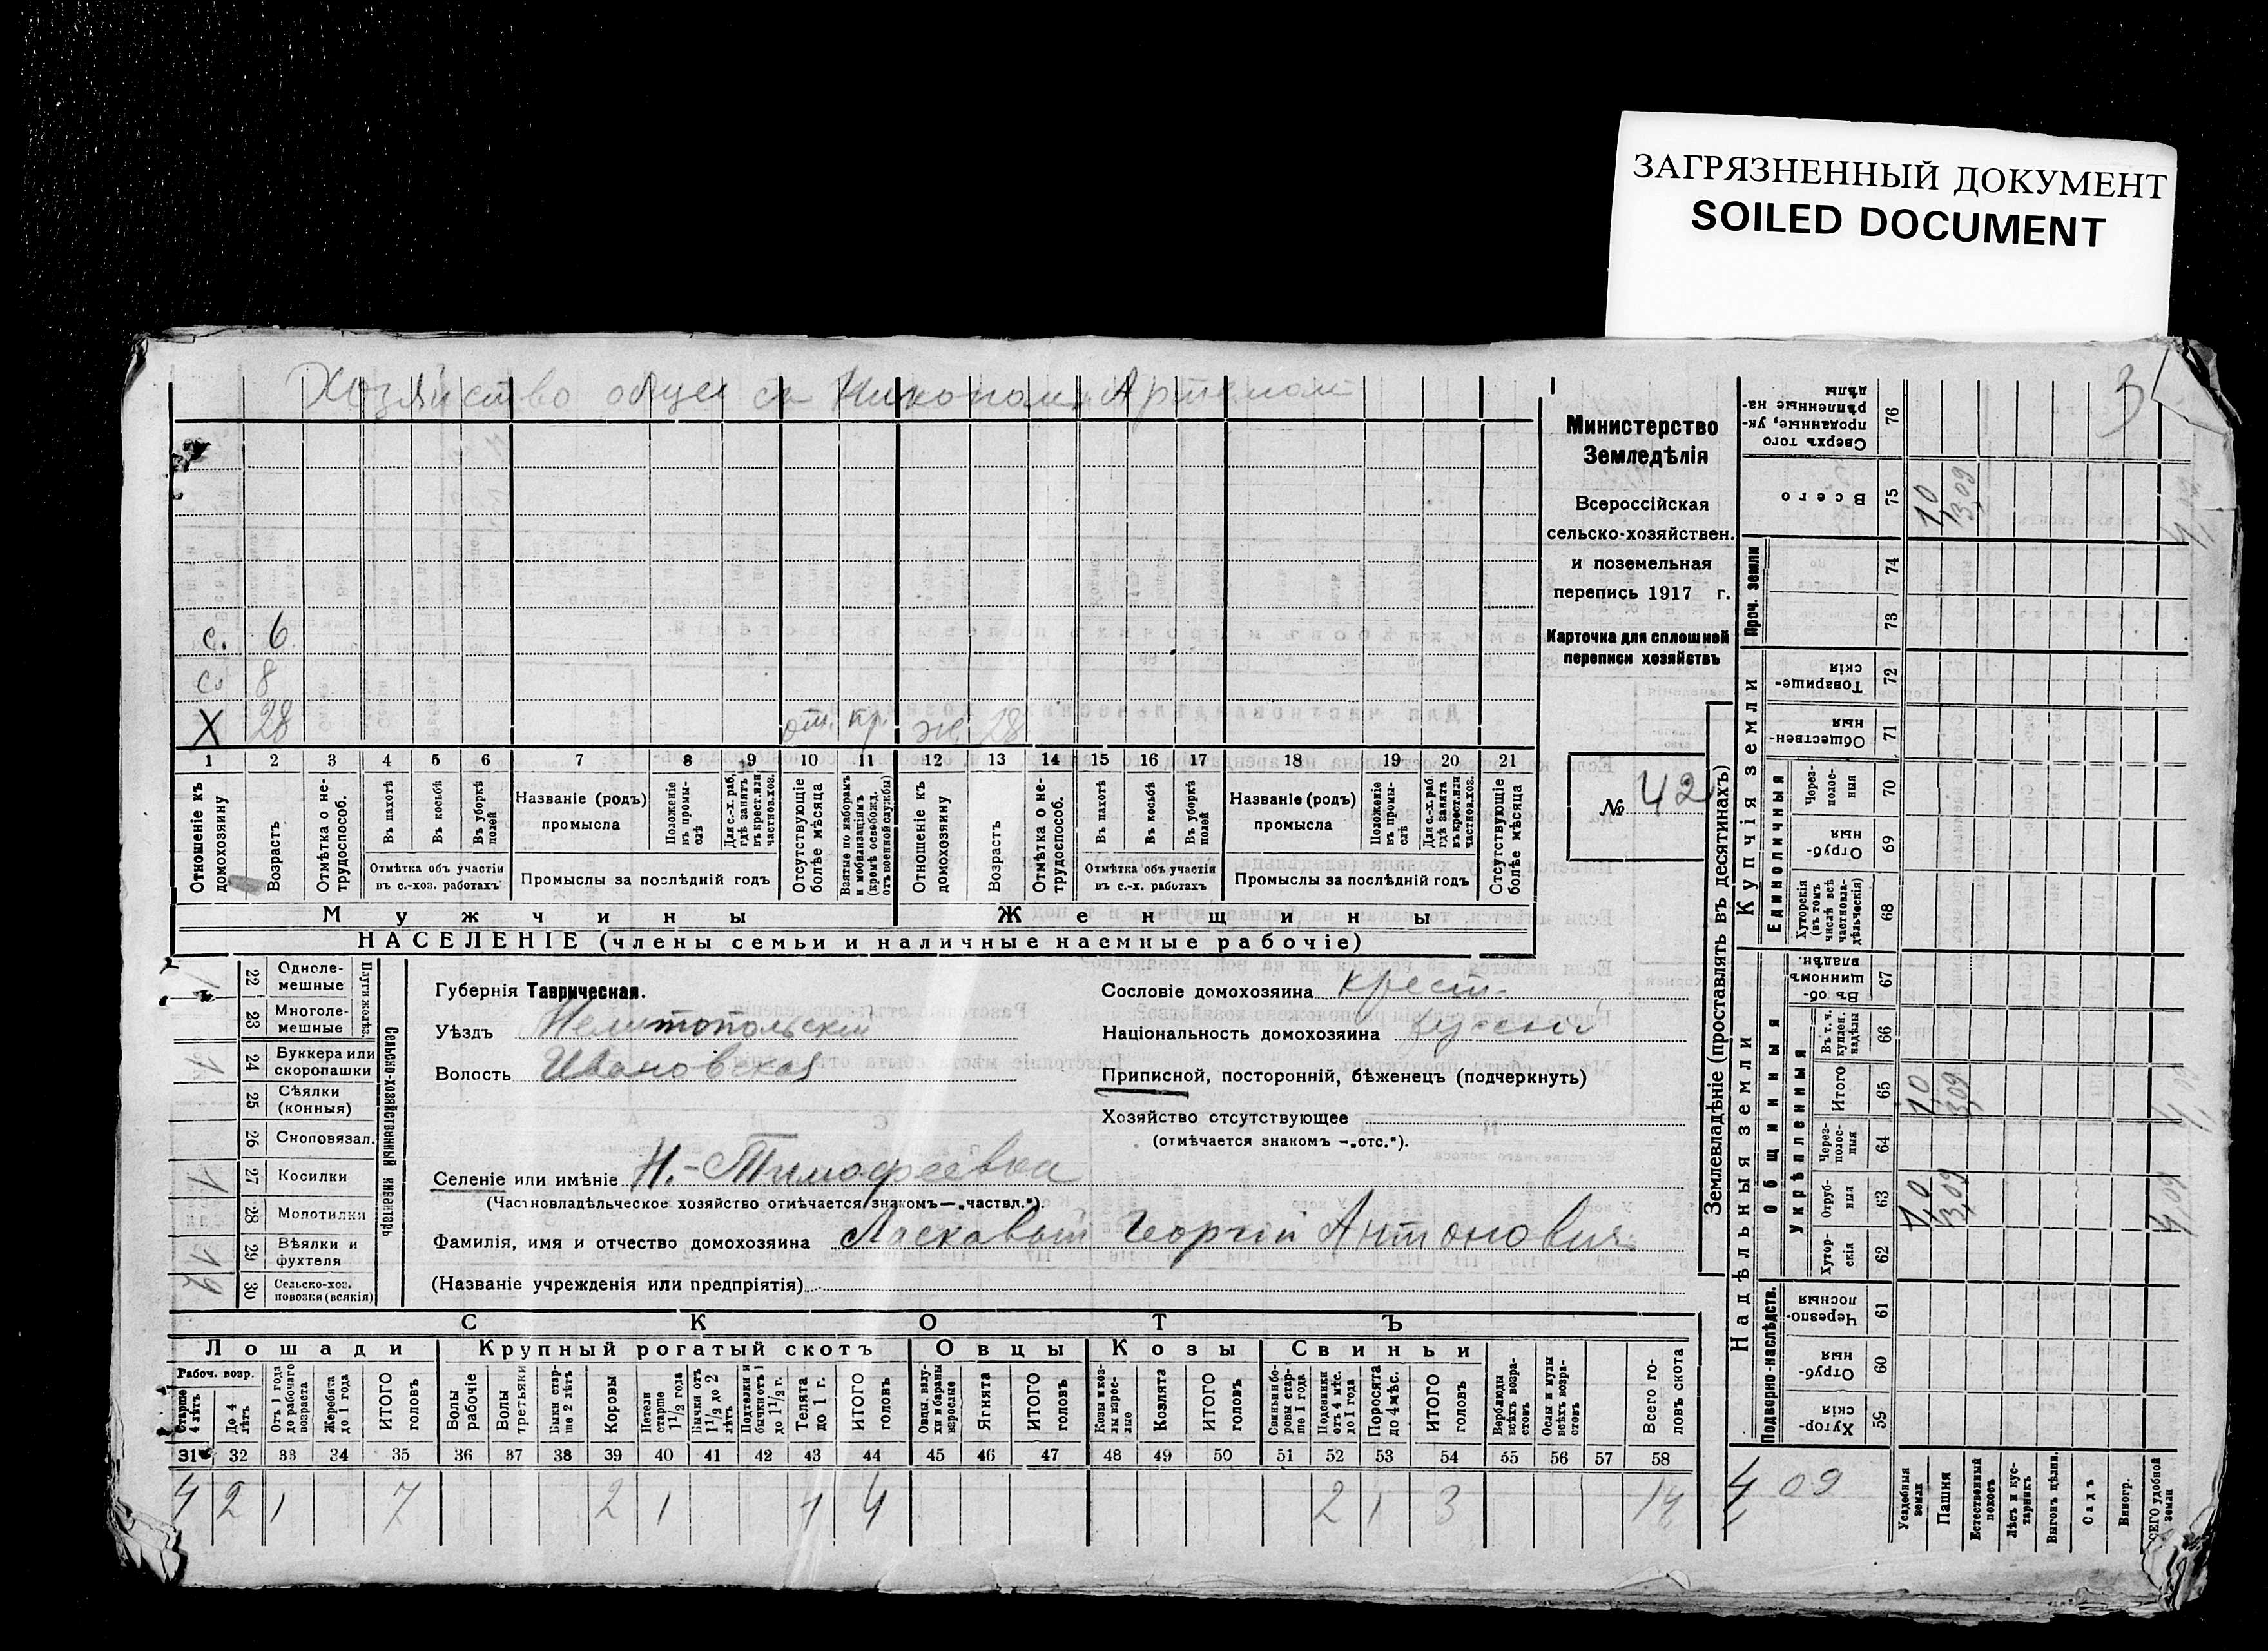 ЗАГРЯЗНЕННЫЙ ДОКУМЕНТ
SOILED DOCUMENT
3
Хозяйство общее с Артемом
с. 6
с. 8
Х 28 от. кр. ж. 28
1 2 3 4 5 6 7 8 9 10 11 12 13 14 15 16 17 18 19 20 21
Отношеніе къ домохозяину
Возрастъ
Отмѣтка о нетрудоспособ.
Въ пахотѣ
Въ косьбѣ
Въ уборкѣ полей
Отмѣтка объ участіи въ с.-хоз. работахъ
Названіе (родъ) промысла
Положеніе въ промыслѣ
Для с.-х. раб, гдѣ занятъ въ крест. или частнов. хоз.
Промыслы за послѣдній годъ
Отсутствующіе болѣе мѣсяца
Взятые по наборамъ и мобилизаціямъ (кромѣ освобожд. отъ военной службы)
Отношеніе къ домохозяину
Возрастъ
Отмѣтка о нетрудоспособ.
Въ пахотѣ
Въ косьбѣ
Въ уборкѣ полей
Отмѣтка объ участіи въ с.-х. работахъ
Названіе (родъ) промысла
Положеніе въ промыслѣ
Для с.-х. раб гдѣ занята въ крест. или частнов. хоз.
Промыслы за послѣдній годъ
Отсутствующіе болѣе мѣсяца
Мужчины
Женщины
НАСЕЛЕНІЕ (члены семьи и наличные наемные рабочіе)
Министерство
Земледѣлія
Всероссійская
сельско-хозяйствен.
и поземельная
перепись 1917 г.
Карточка для сплошной
переписи хозяйствъ
№ 42
Сельско-хозяйственный инвентарь
22 Однолемешные
23 Многолемешные
1 24 Буккера или скоропашки
25 Сѣялки (конныя)
26 Сноповязал.
1 27 Косилки
28 Молотилки
1 29 Вѣялки и фухтеля
2 30 Сельско-хоз. повозки (всякія)
Губернія Таврическая.
Уѣздъ Мелитопольскій
Волость Ивановская
Сословіе домохозяина крест.
Національность домохозяина русскій
Приписной, посторонній, бѣженецъ (подчеркнуть)
Хозяйство отсутствующее
(отмѣчается знакомъ —„отс.“).
Селеніе или имѣніе Н.-Тимофеевка
(Частновладѣльческое хозяйство отмѣчается знакомъ—„частвл.“).
Фамилія, имя и отчество домохозяина Ласкавый Георгій Антонович
(Названіе учрежденія или предпріятія)
СКОТЪ
Лошади Крупный рогатый скотъ Овцы Козы Свиньи
Рабоч. возр.
Старше 4 лѣтъ
До 4 лѣтъ
Отъ 1 года до рабочаго возраста
Жеребята до 1 года
ИТОГО головъ
Волы рабочіе
Волы третьяки
Быки старше 2 лѣтъ
Коровы
Нетели старше 1 1/2 года
Бычки отъ 1 1/2 до 2 лѣтъ
Подтелки и бычки отъ 1 до 1 1/2 г.
Телята до 1 г.
ИТОГО головъ
Овцы, валухи и бараны взрослые
Ягнята
ИТОГО головъ
Козы и козлы взрослые
Козлята
ИТОГО головъ
Свиньи и боровы старше 1 года
Подсвинки отъ 4 мѣс. до 1 года
Поросята до 4 мѣс.
ИТОГО головъ
Верблюды всѣхъ возрастовъ
Ослы и мулы всѣхъ возрастовъ
Всего головъ скота
31 32 33 34 35 36 37 38 39 40 41 42 43 44 45 46 47 48 49 50 51 52 53 54 55 56 57 58
4 2 1 7 2 1 1 4 2 1 3 14
Землевладѣніе (проставлять въ десятинахъ)
Надѣльныя земли
Купчія земли
Проч. земли
Подворно-наслѣдств.
Общинныя
Укрѣпленныя
Единоличныя
Сверхъ того проданные, укрѣпленные надѣлы 76
Всего 75 1,0 3,09
74
73
Товарищескія 72
Общественныя 71
Черезполосныя 70
Отрубныя 69
Хуторскія (въ томъ числѣ всѣ частновладѣльческія) 68
Въ общинномъ владѣн. 67
Въ т. ч. куплен. надѣлы 66
Итого 65 1,0 3,09
Черезполосныя 64
Отрубныя 63 1,0 3,09 4,09
Хуторскія 62
Черезполосныя 61
Отрубныя 60
Хуторскія 59
4 09
Усадебныя земли
Пашня
Естественный покосъ
Лѣсъ и кустарникъ
Выгонъ цѣлин.
Садъ
Виногр.
ВСЕГО удобной земли